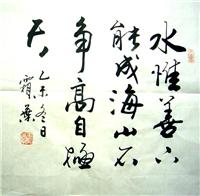 水惟善下
能成海山不
争高自極
天
乙未冬日